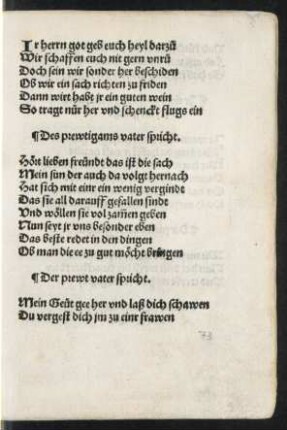 Ir herrn got geb euch heyl darzů
Wir schaffen euch nit gern vnrů
Doch sein wir sonder her beschiden
Ob wir ein sach richten zu friden
Dann wirt habt ir ein guten wein
So tragt nůr her vnd schenckt flugs ein
¶ Des prewtigams vater spricht.
Hört lieben freůndt das ist die sach
Mein sun der auch da volgt hernach
Hat sich mit einr ein wenig vergindt
Das sie all darauff gefallen sindt
Vnd wöllen sie vol zam̃en geben
Nun seyt ir vns besonder eben
Das beste redet in den dingen
Ob man die ee zu gut möcht bringen
¶ Der prewt vater spricht.
Mein Geůt gee her vnd laß dich schawen
Du vergest dich jm zu einr frawen
73